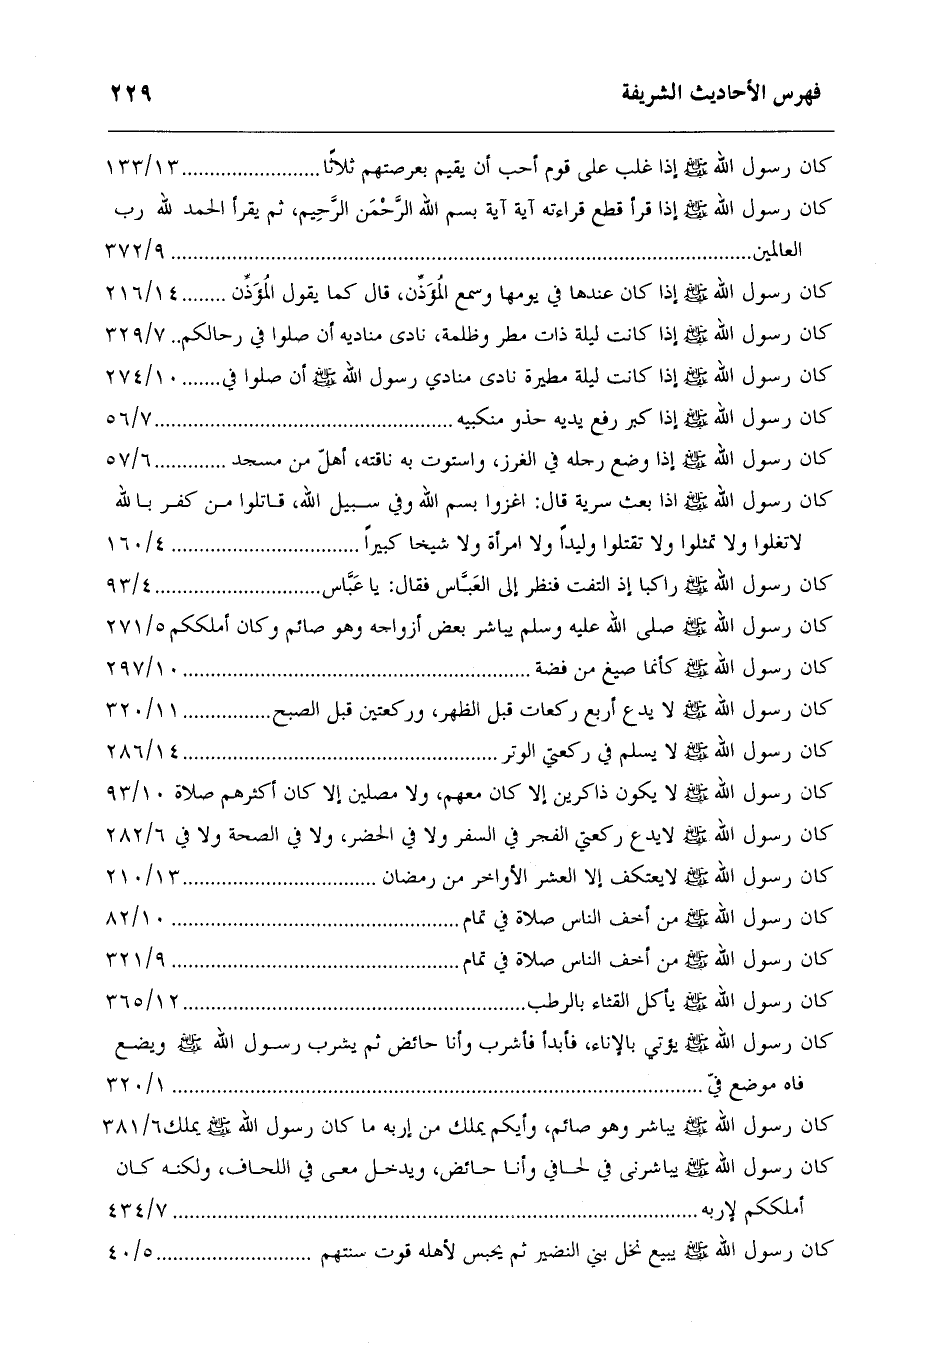 فهرس الأحاديث الشريفة ٢٢٩
كان رسول الله ﷺ إذا غلب على قوم أحب أن يقيم بعرصتهم ثلاثًا.........................١٣٣/١٣
كان رسول الله ﷺ إذا قرأ قطع قراءته آية آية بسم الله الرَّحْمَن الرَّحِيم، ثم يقرأ الحمد لله رب
العالمين.......................................................................................................... ٣٧٢/٩
كان رسول الله ﷺ إذا كان عندها في يومها وسمع الْمُؤَذِّن، قال كما يقول الْمُؤَذِّن ........٢١٦/١٤
كان رسول الله ﷺ إذا كانت ليلة ذات مطر وظلمة، نادى مناديه أن صلوا في رحالكم.. ٣٢٩/٧
كان رسول الله ﷺ إذا كانت ليلة مطيرة نادى منادي رسول الله ﷺ أن صلوا في.......٢٧٤/١٠
كان رسول الله ﷺ إذا كبر رفع يديه حذو منكبيه ......................................................٥٦/٧
كان رسول الله ﷺ إذا وضع رحله في الغرز، واستوت به ناقته، أهلّ من مسجد .............٥٧/٦
كان رسول الله ﷺ اذا بعث سرية قال: اغزوا بسم الله وفي سبيل الله، قاتلوا من كفر بالله
لاتغلوا ولا تمثلوا ولا تقتلوا وليداً ولا امرأة ولا شيخا كبيراً .................................. ١٦٠/٤
كان رسول الله ﷺ راكبا إذ التفت فنظر إلى العَبَّاس فقال: يا عَبَّاس..............................٩٣/٤
كان رسول الله ﷺ صلى الله عليه وسلم يباشر بعض أزواجه وهو صائم وكان أملككم ٢٧١/٥
كان رسول الله ﷺ كأنما صيغ من فضة ...............................................................٢٩٧/١٠
كان رسول الله ﷺ لا يدع أربع ركعات قبل الظهر، وركعتين قبل الصبح................٣٢٠/١١
كان رسول الله ﷺ لا يسلم في ركعتي الوتر .........................................................٢٨٦/١٤
كان رسول الله ﷺ لا يكون ذاكرين إلا كان معهم، ولا مصلين إلا كان أكثرهم صلاة ٩٣/١٠
كان رسول الله ﷺ لايدع ركعتي الفجر في السفر ولا في الحضر، ولا في الصحة ولا في ٢٨٢/٦
كان رسول الله ﷺ لايعتكف إلا العشر الأواخر من رمضان ...................................٢١٠/١٣
كان رسول الله ﷺ من أخف الناس صلاة في تمام.................................................... ٨٢/١٠
كان رسول الله ﷺ من أخف الناس صلاة في تمام.................................................... ٣٢١/٩
كان رسول الله ﷺ يأكل القثاء بالرطب..............................................................٣٦٥/١٢
كان رسول الله ﷺ يؤتي بالإناء، فأبدأ فأشرب وأنا حائض ثم يشرب رسول الله ﷺ ويضع
فاه موضع فيّ ................................................................................................ ٣٢٠/١
كان رسول الله ﷺ يباشر وهو صائم، وأيكم يملك من إربه ما كان رسول الله ﷺ يملك٣٨١/٦
كان رسول الله ﷺ يباشرنى في لحافي وأنا حائض، ويدخل معى في اللحاف، ولكنه كان
أملككم لإربه................................................................................................ ٤٣٤/٧
كان رسول الله ﷺ يبيع نخل بني النضير ثم يحبس لأهله قوت سنتهم ............................٤٠/٥